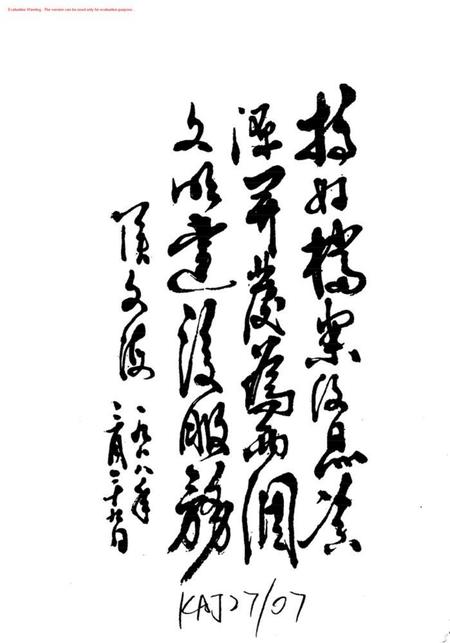 Evaluation Warning : The version can be used only for evaluation purpose...
搞好檔案信息资
源开發為两個
文明建设服務
张文海
一九八八年
三月二十九日
KAJ27/07